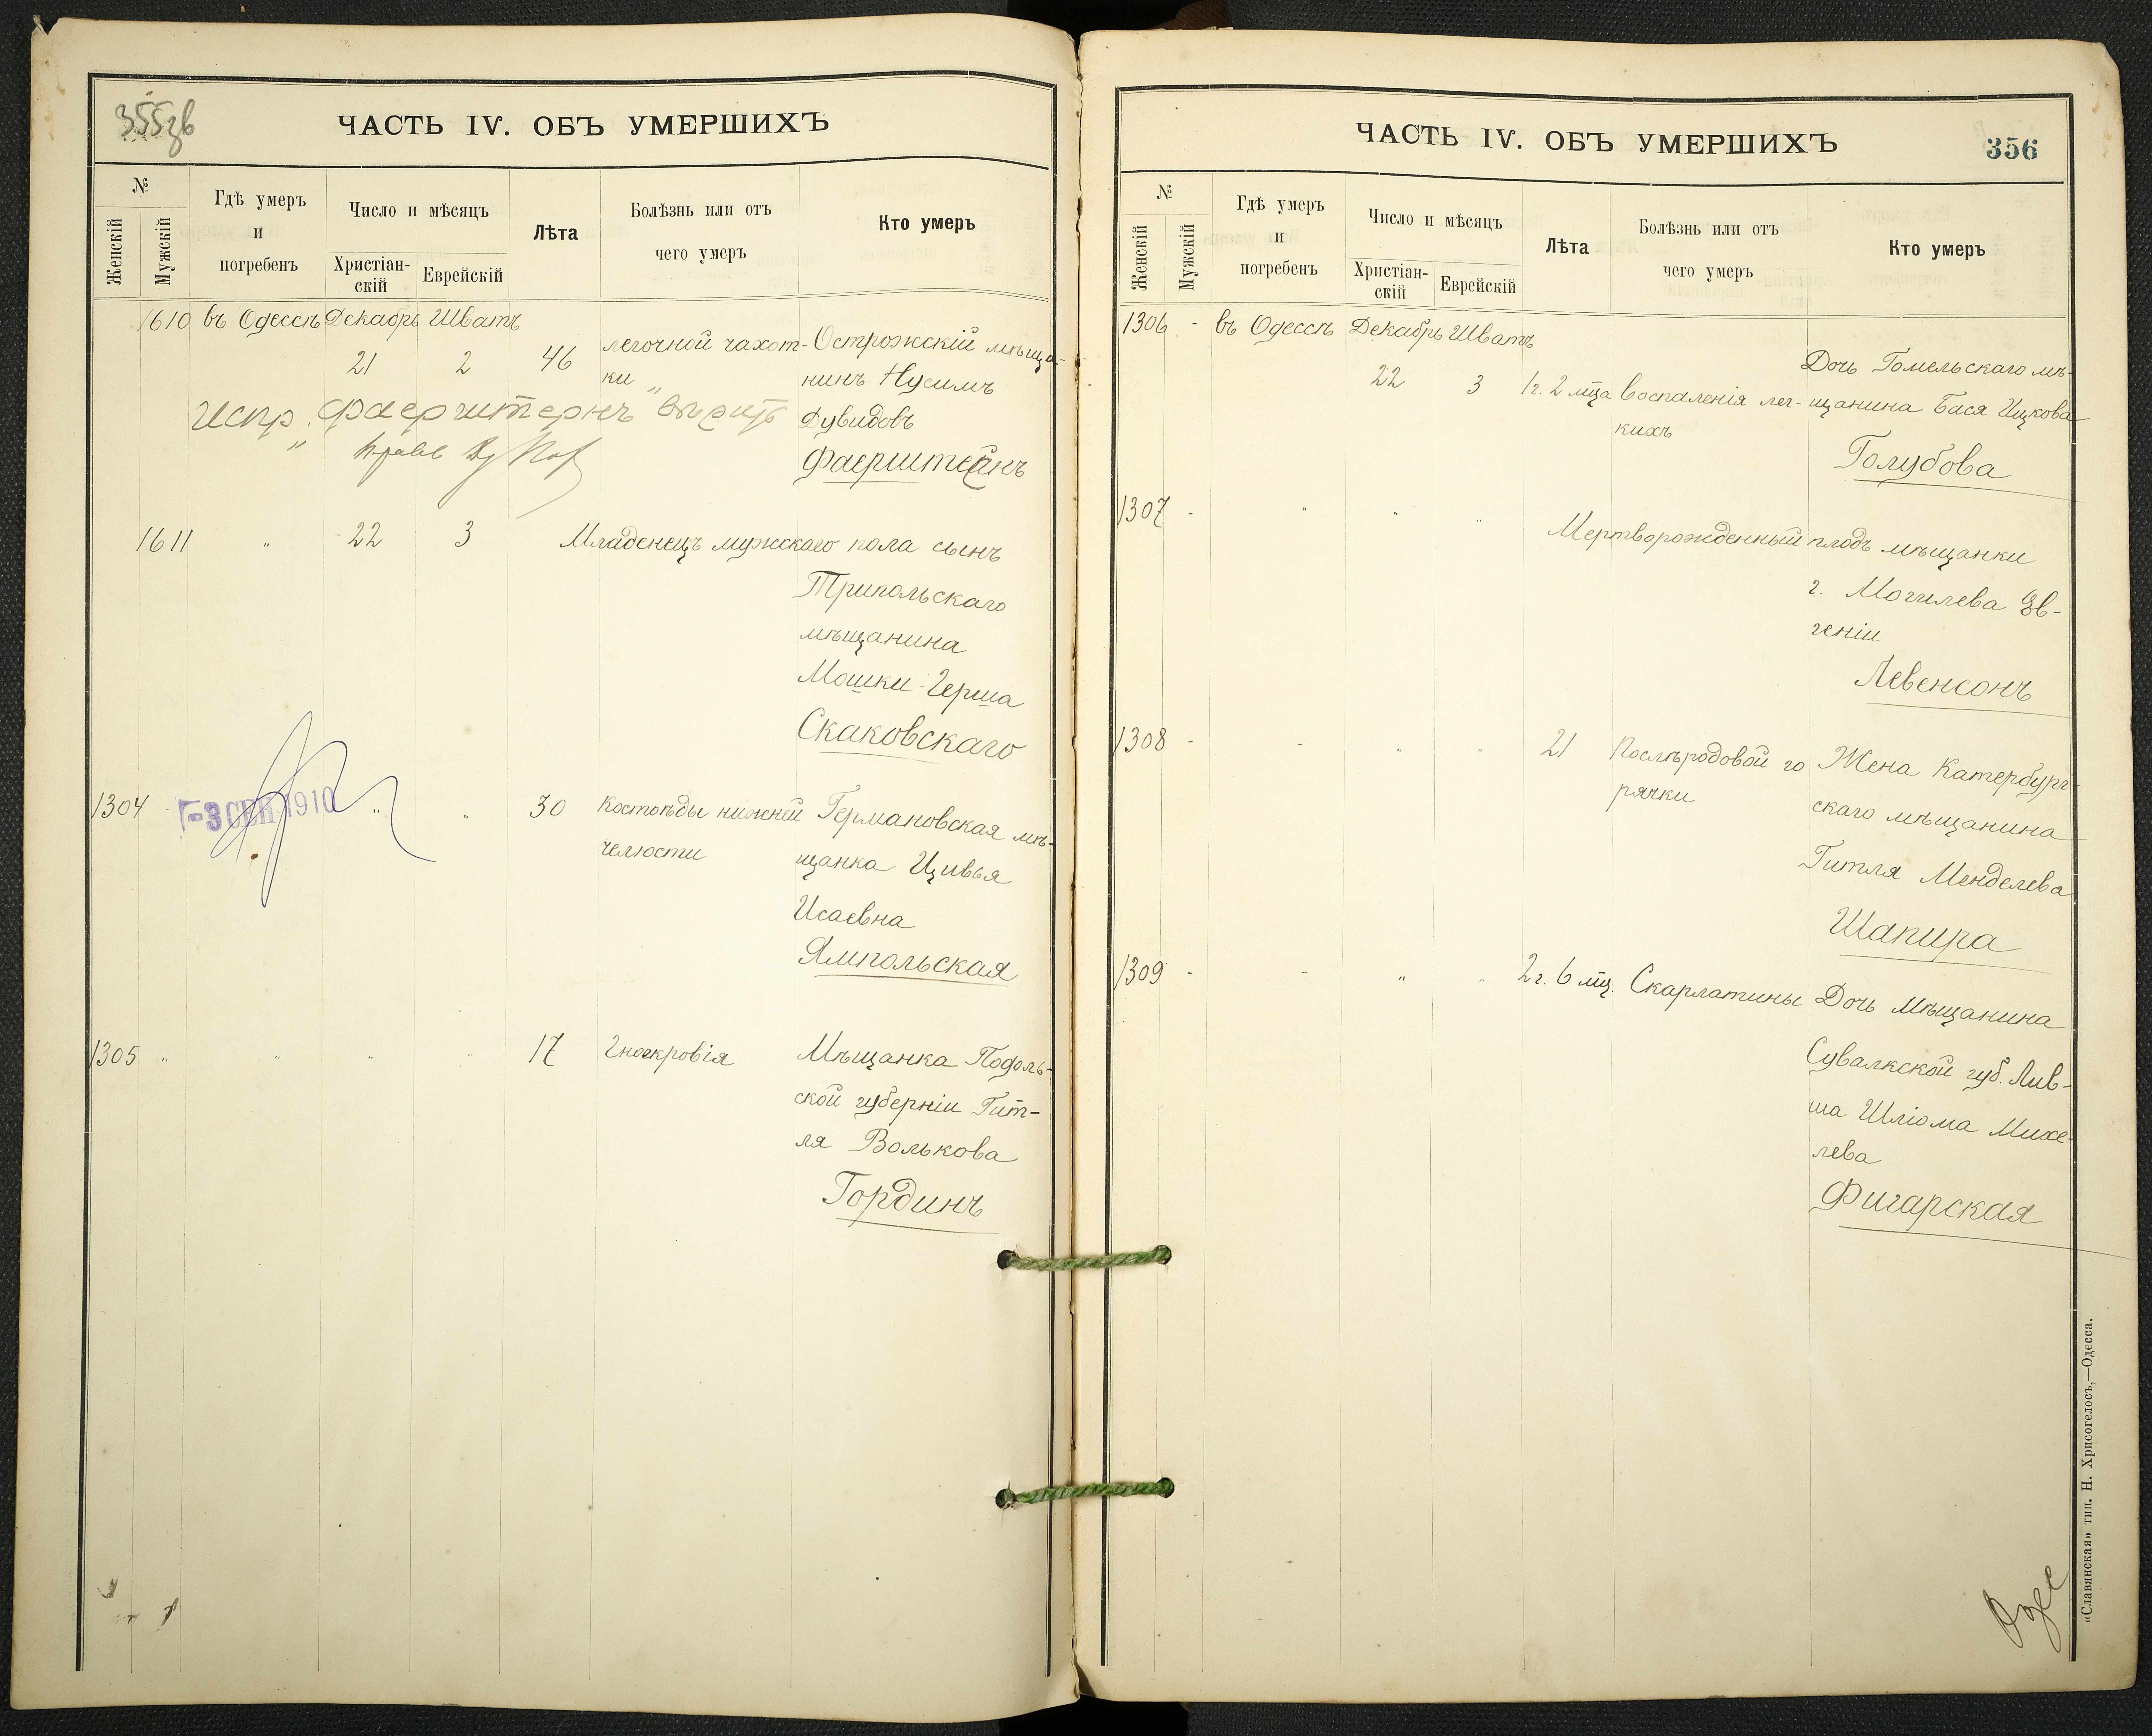 355зв
ЧАСТЬ IV. ОБЪ УМЕРШИХЪ
№
Женскій
Мужскій
Гдѣ умеръ
и
погребенъ
Число и мѣсяцъ
Христіан-
скій
Еврейскій
Лѣта
Болѣзнь или отъ
чего умеръ
Кто умеръ
1610 въ Одессѣ Декабрь Шватъ
21 2 46 легочной чахот- Острожскій мѣща-
ки нинъ Нусимъ
Испр. Фаерштернъ вѣрить Дувидовъ
Фаерштейнъ
1611 " 22 3 Младенецъ мужскаго пола сынъ
Трипольскаго
мѣщанина
Мошки-Герша
Скаковскаго
1304 -3 СЕН 1910 " " 30 Костоѣды нижней Германовская мѣ-
челюсти щанка Цивья
Исаевна
Ямпольская
1305 " " " " 17 Гноекровія Мѣщанка Подоль-
ской губерніи Гит-
ля Волькова
Гординъ
ЧАСТЬ IV. ОБЪ УМЕРШИХЪ
356
№
Женскій
Мужскій
Гдѣ умеръ
и
погребенъ
Число и мѣсяцъ
Христіан-
скій
Еврейскій
Лѣта
Болѣзнь или отъ
чего умеръ
Кто умеръ
1306 - въ Одессѣ Декабрь Шватъ
Дочь Гомельскаго мѣ-
22 3 1г. 2 мца воспаленія лег- щанина Бася Ицкова
кихъ
Голубова
1307 - " " "
Мертворожденный плодъ мѣщанки
г. Могилева Ев-
геніи
Левенсонъ
1308 - - " " 21 Послѣродовой го Жена Катербург-
рячки скаго мѣщанина
Гитля Менделева
Шапира
1309 - - " " 2г. 6 мц. Скарлатины Дочь Мѣщанина
Сувалкской губ. Лив-
ша Шліома Михе-
лева
Фигарская
«Славянская» тип. Н. Хрисогелосъ,—Одесса.
Оде